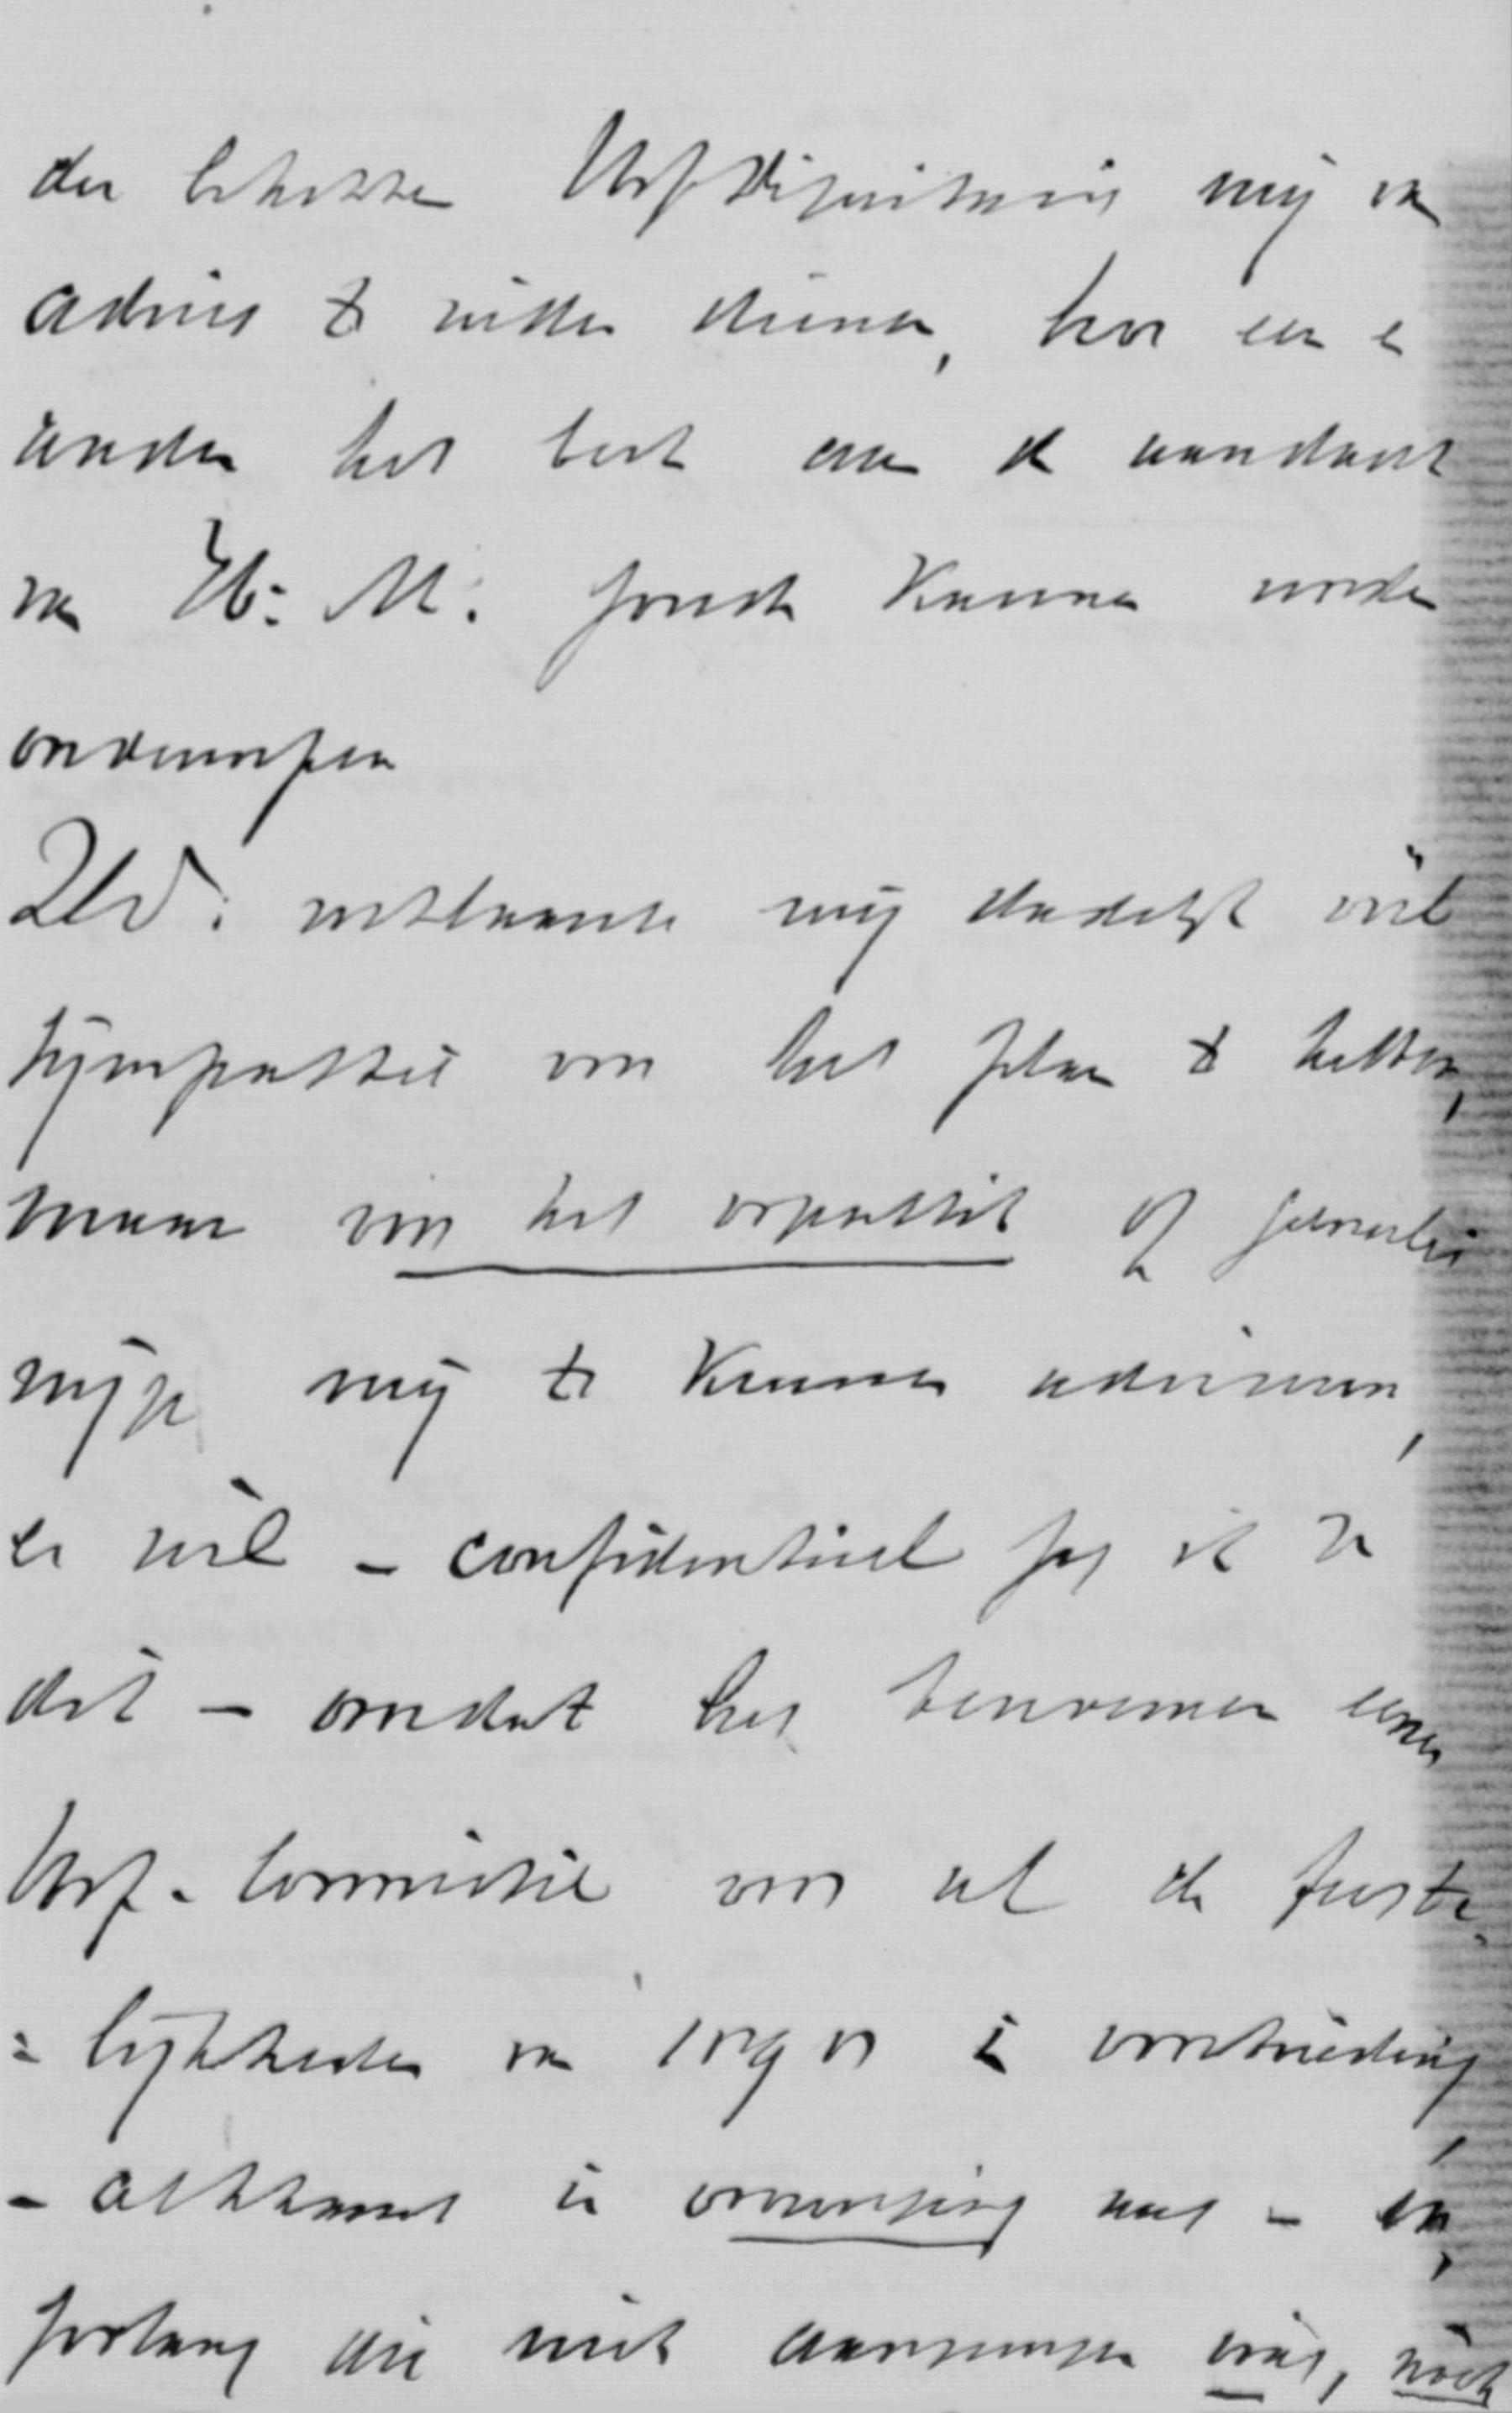 der betrokken Hofdignitaris mij van
advies te willen dienen, hoe een en
ander het best aan de aandacht
van H: M: zoude kunnen worden
onderworpen
UEd: verklaarde mij dadelijk veel
sympathie voor het plan te hebben,
maar voor het oogenblik of
wijze mij te kunnen adviseeren,
en wel - confidentieel zeg ik U
dit - omdat het benoemen eener
Hof-Commissie voor al de feeste-
=lijkheden van is in voorbereiding,
- althans in overweging was - en,
zoolang die niet aangewezen was, noch